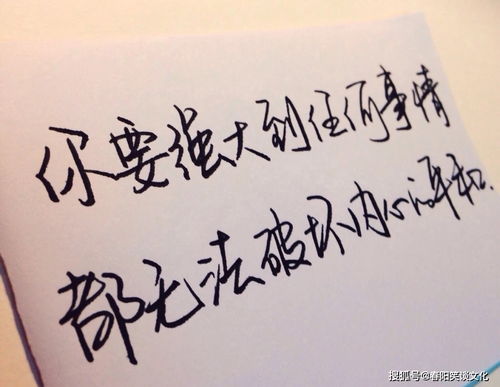 你要强大到任何事情
都无法破坏内心平和.
搜狐号@春阳笑谈文化